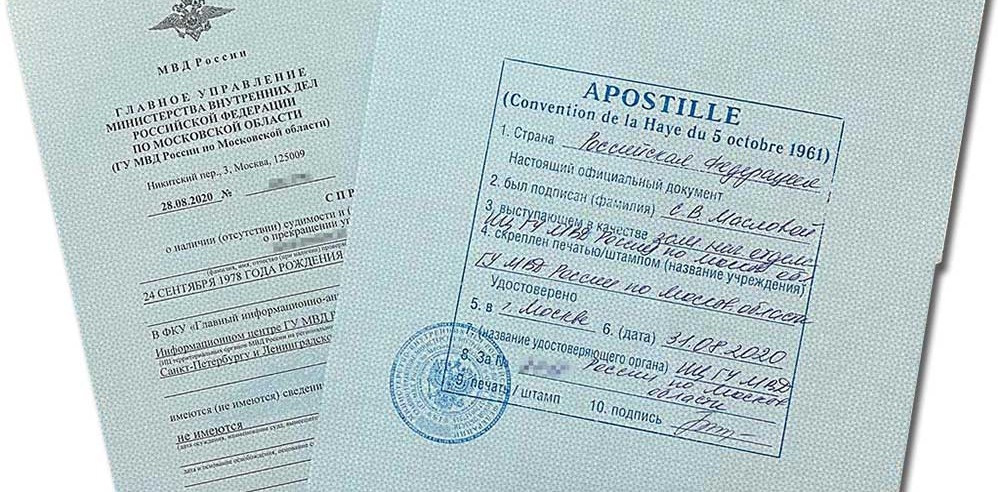 МВД России
ГЛАВНОЕ УПРАВЛЕНИЕ
МИНИСТЕРСТВА ВНУТРЕННИХ ДЕЛ
РОССИЙСКОЙ ФЕДЕРАЦИИ
ПО МОСКОВСКОЙ ОБЛАСТИ
(ГУ МВД России по Московской области)
Никитский пер., 3, Москва, 125009
28.08.2020 №
СПР
о наличии (отсутствии) судимости и (
о прекращении уг
(фамилия, имя, отчество (при наличии) проверя
24 СЕНТЯБРЯ 1978 ГОДА РОЖДЕНИЯ
В ФКУ «Главный информационно-ан
Информационном центре ГУ МВД Р
(ИЦ территориальных органов МВД России на региональн
Санкт-Петербургу и Ленинградско
имеются (не имеются) сведени
не имеются
(дата осуждения, наименование суда, вынесшего
дата и основание освобождения, основание
APOSTILLE
(Convention de la Haye du 5 octobre 1961)
1. Страна Российская Федерация
Настоящий официальный документ
2. был подписан (фамилия) С.В. Масловой
3. выступающем в качестве зам. нач. отдела
ИЦ ГУ МВД России по Москов. обл.
4. скреплен печатью/штампом (название учреждения)
ГУ МВД России по Москов. области
Удостоверено
5. в г. Москве 6. (дата) 31.08.2020
7. (название удостоверяющего органа) ИЦ ГУ МВД
России по Москов.
области
8. За №
9. печать/штамп 10. подпись